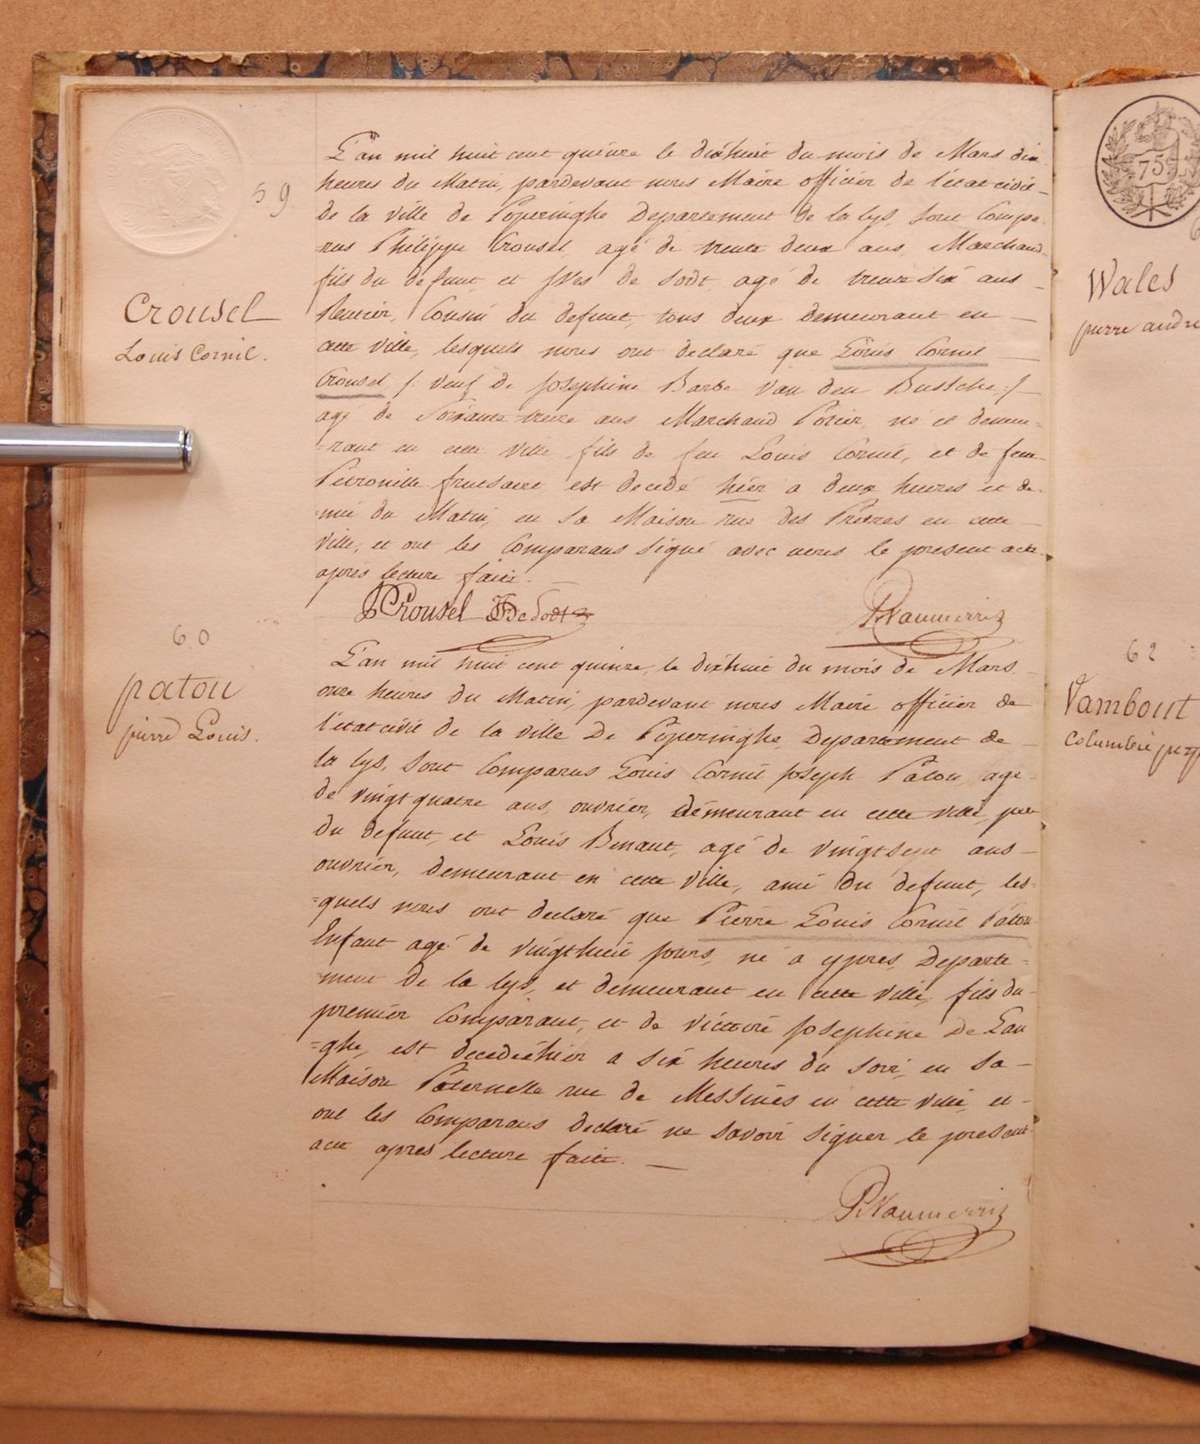 59
Crousel
Louis Cornil.
L'an mil huit cent quinze le dixhuit du mois de Mars dix
heures du Matin, pardevant nous Maire officier de l'état civil
de la ville de Poperinghe Departement de la lys, sont Compa-
-rus Philippe Crousel, agé de trente deux ans, Marchand
fils du defunt, et Yves de Sodt agé de trente six ans
, Cousin du defunt, tous deux demeurant en
cette ville, lesquels nous ont declaré que Louis Cornil
Crousel /: veuf de Josephine Barbe Van den Bussche :/
agé de Soixante treize ans Marchand, né et demeu-
-rant en cette ville fils de feu Louis Cornil, et de feue
Petronille est decedé hier a deux heures et de-
-mie du Matin, en sa Maison rue des Prètres en cette
ville, et ont les Comparans signé avec nous le present acte
après lecture faite.
PCrousel De Sodt
60
patou
pierre Louis.
L'an mil huit cent quinze, le dixhuit du mois de Mars
onze heures du Matin, pardevant nous Maire officier de
l'état civil de la ville De Poperinghe, Departement de
la lys, sont Comparus Louis Cornil Joseph Patou, agé
de vingt quatre ans, ouvrier, demeurant en cette ville, père
du defunt, et Louis Benaut, agé de vingtsept ans
ouvrier, demeurant en cette ville, ami du defunt, les-
-quels nous ont declaré que Pierre Louis Cornil Patou
Enfant agé de vingthuit jours, né a ypres, Departe-
-ment de la lys, et demeurant en cette ville, fils du
premier Comparant, et de victoire Josephine De Lan-
-ghe, est decedé hier a six heures du soir, en sa
Maison Paternelle rue de Messines en cette ville, et
ont les Comparans declaré ne savoir signer le present
acte après lecture faite.
75
Wales
pierre andré
62
Vambout